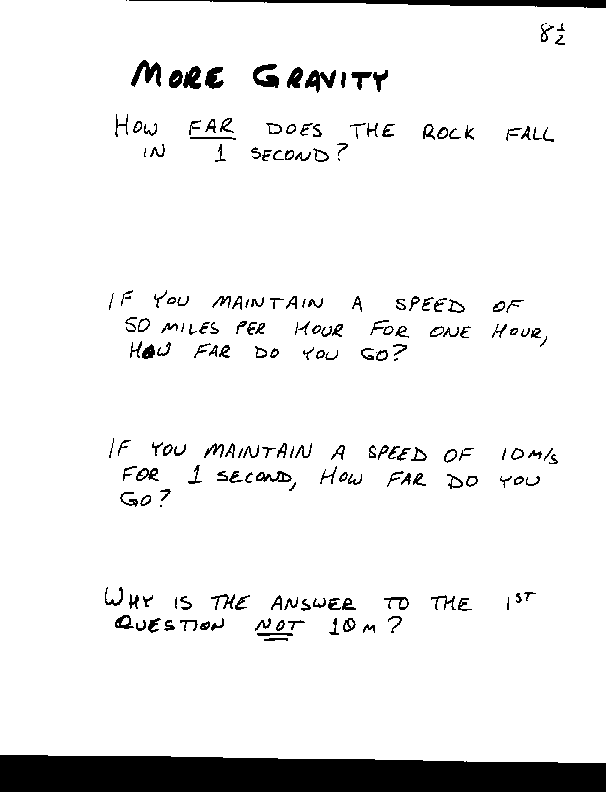 8½
MORE GRAVITY
HOW FAR DOES THE ROCK FALL
IN 1 SECOND?
IF YOU MAINTAIN A SPEED OF
50 MILES PER HOUR FOR ONE HOUR,
HOW FAR DO YOU GO?
IF YOU MAINTAIN A SPEED OF 10 M/S
FOR 1 SECOND, HOW FAR DO YOU
GO?
WHY IS THE ANSWER TO THE 1ST
QUESTION NOT 10 M?